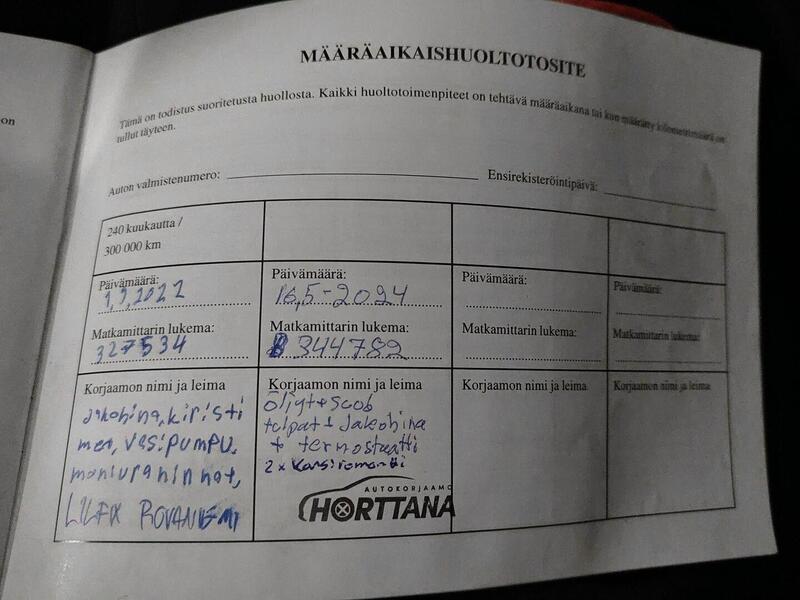 on
MÄÄRÄAIKAISHUOLTOTOSITE
Tämä on todistus suoritetusta huollosta. Kaikki huoltotoimenpiteet on tehtävä määräaikana tai kun määrätty kilometrimäärä on
tullut täyteen.
Auton valmistenumero:
Ensirekisteröintipäivä:
240 kuukautta /
300 000 km
Päivämäärä:
1,9,2022
Matkamittarin lukema:
327534
Korjaamon nimi ja leima
Jakohina, kiristi
met, vesipumpu,
moniurahinnat,
ROVANIEMI
Päivämäärä:
16,5-2024
Matkamittarin lukema:
344782
Korjaamon nimi ja leima
Öljyt + Suob
tulpat + Jakohina
+ termostaatti
2 x
AUTOKORJAAMO
HORTTANA
Päivämäärä:
Matkamittarin lukema:
Korjaamon nimi ja leima
Päivämäärä:
Matkamittarin lukema:
Korjaamon nimi ja leima